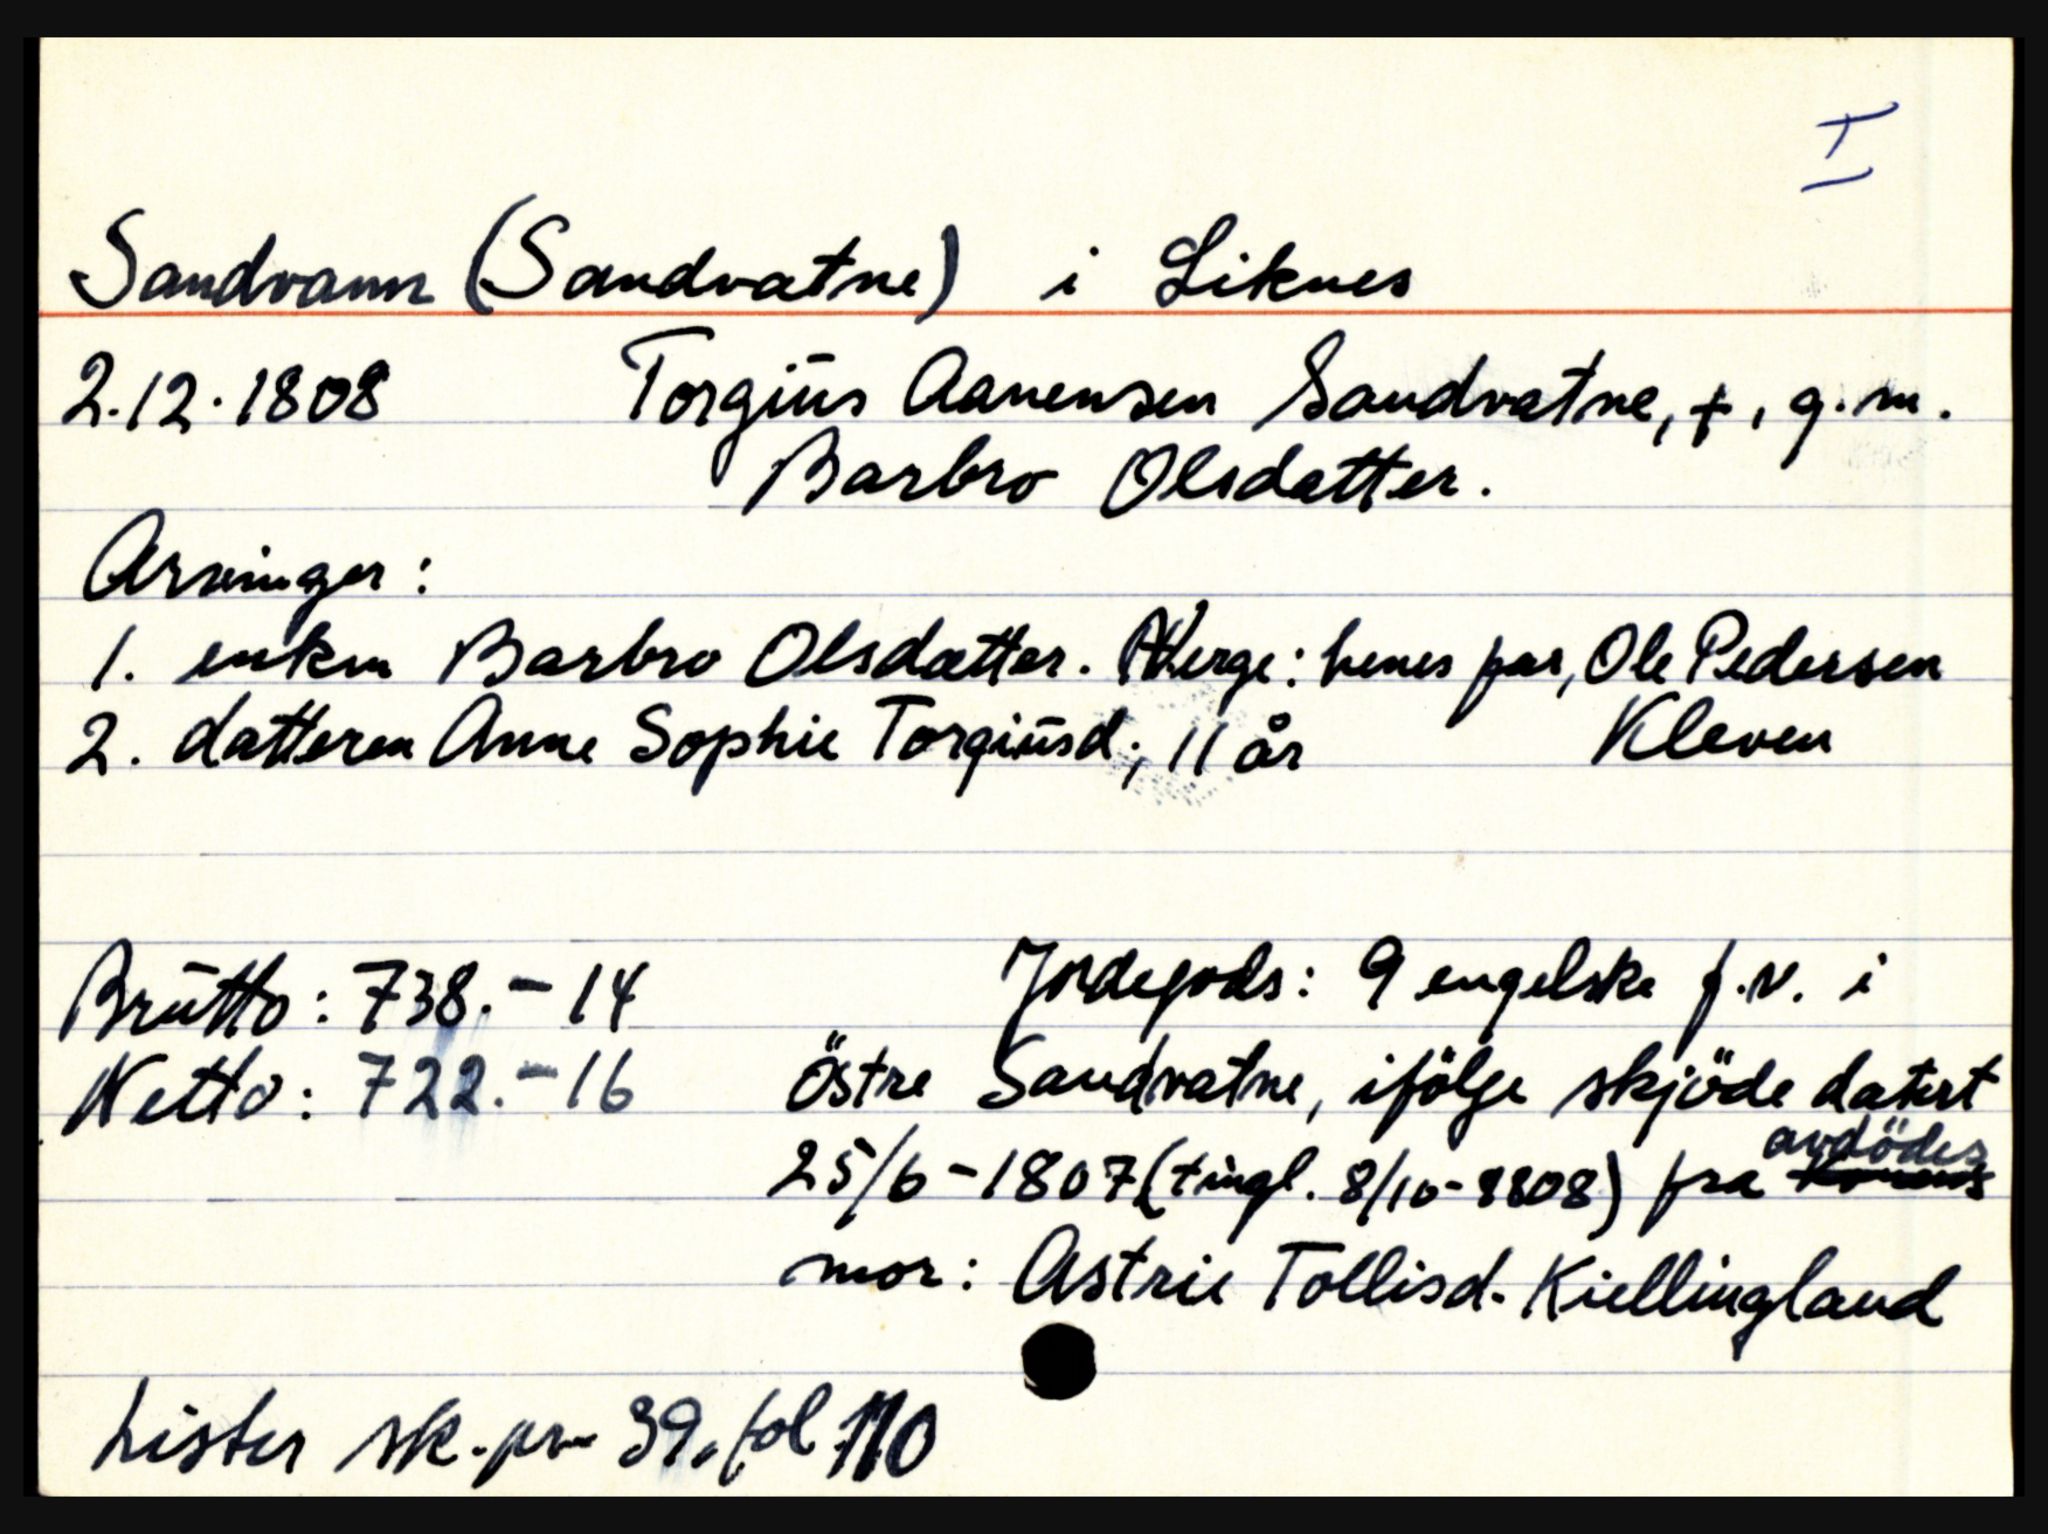 I
Sandvann (Sandvatne) i Liknes
2.12.1808 Torgius Aanensen Sandvatne, +, g.m.
Barbro Olsdatter.
Arvinger:
1. enken Barbro Olsdatter. Verge: henes far, Ole Pedersen
2. datteren Anne Sophie Torgiusd., 11 år Kleven
Brutto: 738.-14 Jordegods: 9 engelske f.v. i
Netto: 722.-16 Östre Sandvatne, ifölge skjöde datert
avdödes
25/6-1807 (tingl. 8/10-1808) fra
mor: Astrie Tollisd. Kiellingland
Lister sk.pr. 39, fol 110